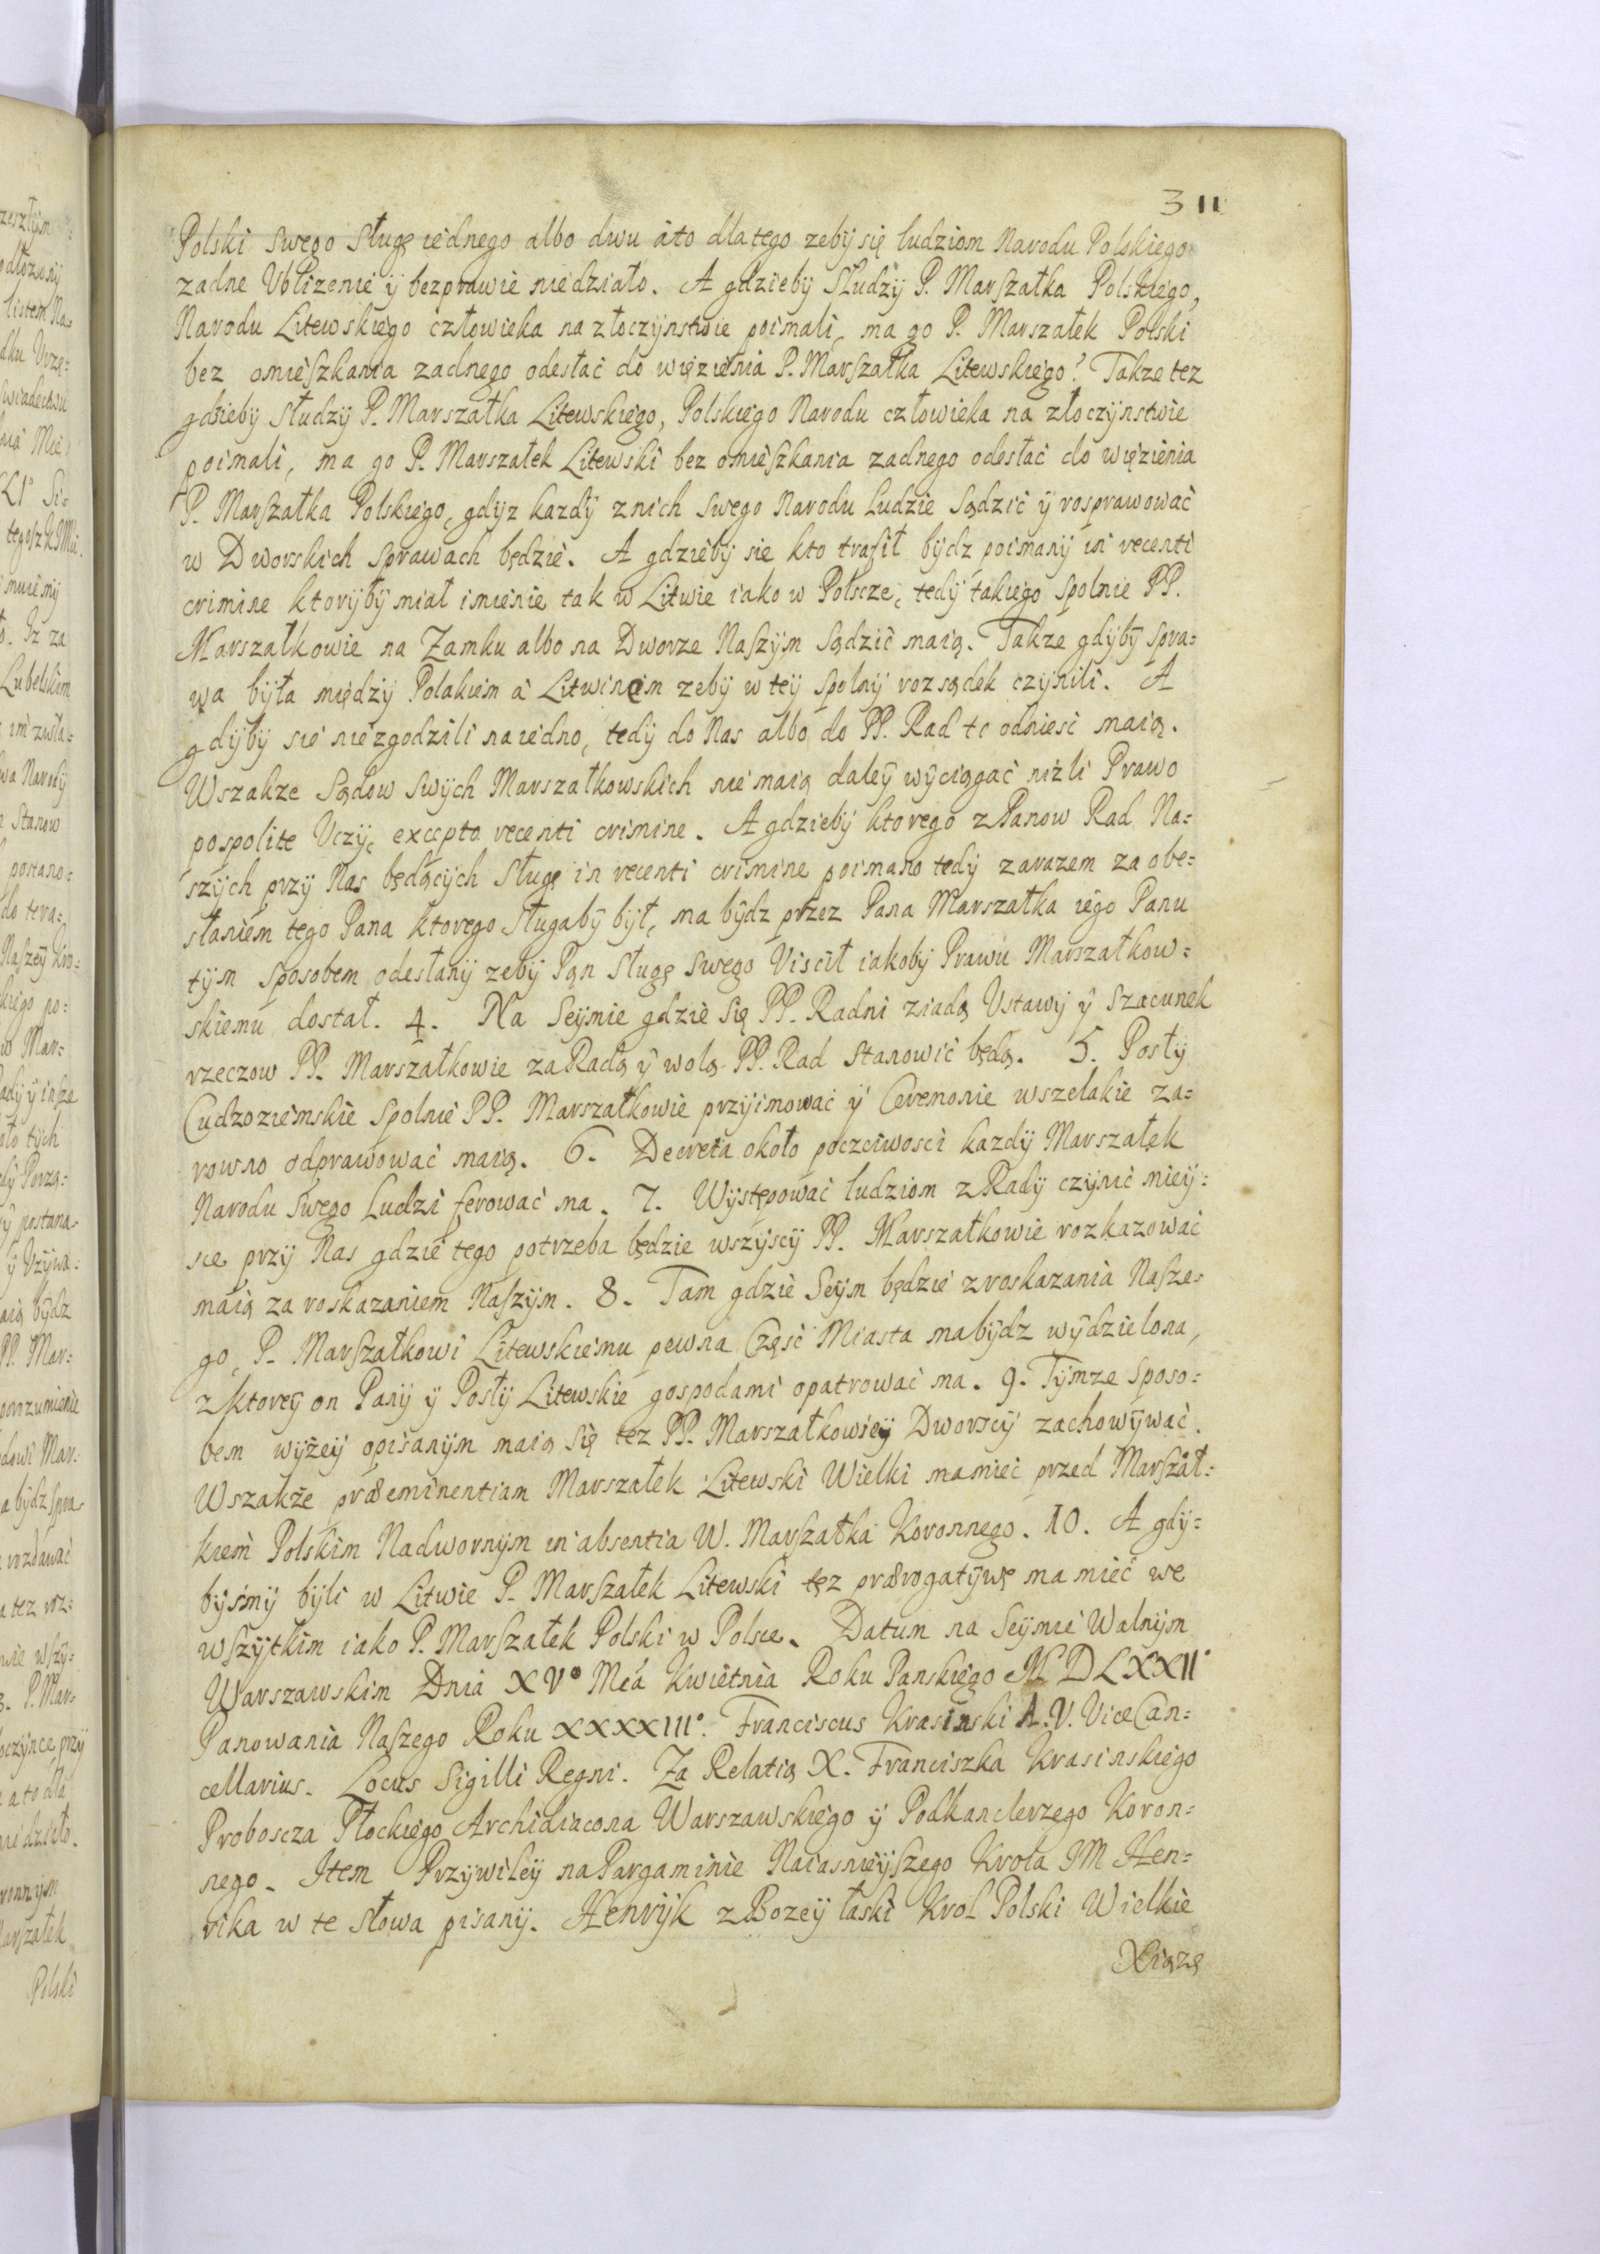 311
Polski swego sługę iednego albo dwu áto dlatego zeby się ludziom Narodu Polskiego
zadne Ublizenie ÿ bezprawie niedziało. A gdzieby Słudzÿ P. Marſzałka Polskiego,
Narodu Litewskiego człowieka na złoczÿnstwie poimali, ma go P. Marszałek Polski
bez omieſzkania zadnego odesłać do więzienia P. Marſzałka Litewskiego? Takze tez
gdzieby Słudzy P. Marszałka Litewskiego, Polskiego Narodu człowieka na złoczÿnstwie
poimali, ma go P. Marszałek Litewski bez omieſzkania zadnego odesłać do więzienia
P. Marſzałka Polskiego, gdÿz kazdÿ znich swego Narodu Ludzie Sądzić ÿ rosprawować
w Dworskich sprawach będzie. A gdzieby sie kto trafił bÿdz poimanÿ in recenti
crimine ktorÿbÿ miał imienie tak w Litwie iako w Polscze, tedÿ takiego spolnie PP.
Marszałkowie na Zamku albo na Dworze Naſzÿm Sądzić maią. Takze gdÿbÿ spra-
wa bÿła międzÿ Polakiem á Litwinem zebÿ w teÿ spolnÿ rozsądek czÿnili. A
gdÿbÿ sie niezgodzili naiedno, tedÿ do Nas albo do PP. Rad to odnieść maią.
Wszakze Sądow Swÿch Marszałkowskich nie maią daleÿ wÿciągać niżli Prawo
pospolite Uczÿ, excepto recenti crimine. A gdziebÿ ktorego z Panow Rad Na-
szÿch przÿ Nas będącÿch Sługę in recenti crimine poimano tedÿ zarazem za obe-
słaniem tego Pana ktorego Sługabÿ bÿł, ma bÿdz przez Pana Marszałka iego Panu
tÿm sposobem odesłanÿ zebÿ Pan sługę swego Uiscił iakobÿ Prawu Marszałkow-
skiemu dostał. 4. Na Seÿmie gdzie się PP. Radni ziadą Ustawÿ ÿ Szacunek
rzeczow PP. Marszałkowie zaRadą ÿ wolą PP. Rad Stanowić będą. 5. Posłÿ
Cudzoziemskie Spolnie PP. Marszałkowie przÿimować ÿ Ceremonie wszelakie za-
rowno odprawować maią. 6. Decreta około poczciwosci kazdÿ Marszałek
Narodu Swego Ludzi ferować ma. 7. Wÿstępować ludziom z Radÿ czÿnić mieÿ-
sce przÿ Nas gdzie tego potrzeba będzie wszÿscÿ PP. Marszałkowie rozkazować
máią za roskazaniem Naſzÿm. 8. Tam gdzie Seÿm będzie z roskazania Naſze-
go, P. Marſzałkowi Litewskiemu pewna Częśc Miasta mabÿdz wÿdzielona,
z ktoreÿ on Panÿ ÿ Posłÿ Litewskie gospodami opatrować ma. 9. Tÿmze Sposo-
bem wÿżeÿ opisanÿm maią się tez PP. Marszałkowieÿ Dworscÿ zachowÿwać.
Wszakże præeminentiam Marszałek Litewski Wielki mamieć przed Marſzał-
kiem Polskim Nadwornÿm in absentia W. Marſzałka Koronnego. 10. A gdÿ-
bÿśmÿ bÿli w Litwie P. Marſzałek Litewski tez prærogatÿwę ma mieć we
wſzÿtkim iako P. Marſzałek Polski w Polsce. Datum na Seÿmie Walnÿm
Warszawskim Dnia XV° Mca Kwietnia Roku Panskiego MDLXXII°
Panowania Naſzego Roku XXXXIII°. Franciscus Krasinski A.V. ViceCan-
cellarius. Locus Sigilli Regni. Za Relatią X. Franciszka Krasinskiego
Proboscza Płockiego Archidiacona Warszawskiego ÿ Podkanclerzego Koron-
nego. Item Przÿwileÿ na Pargaminie Naiasnieÿſzego Krola JM Hen-
rika w te słowa pisanÿ. Henrÿk z Bozeÿ łaski Krol Polski Wielkie
Xiązę